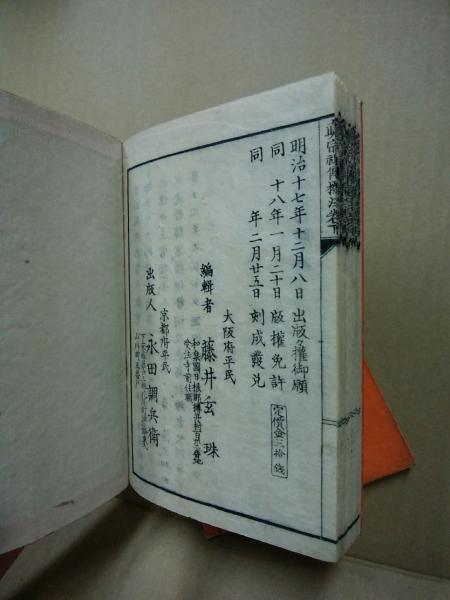 眞宗祖傳攝法卷下
明治十七年十二月八日出版々權御願
同十八年一月二十日版權免許
同年二月廿五日刻成發兌
定價金三拾錢
大阪府平民
編輯者 藤井玄珠
受法寺前住職
京都府平民
出版人 永田調兵衛